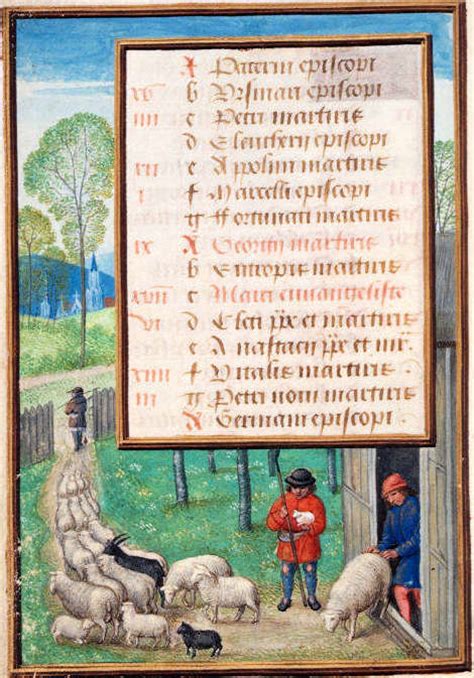 A Paterni episcopi
xv b Vrsmari episcopi
iiii c Petri martiris
d Eleutherii episcopi
xii e Appolini martiris
i f Marcelli episcopi
g Fortunati martiris
ix A Georgii martiris
b Eutropii martiris
xvii c Marci euuangeliste
vi d Cleti pp et martiris
e Anastacii pp et mr.
xiiii f Vitalis martiris
iii g Petri noui martiris
A Germani episcopi